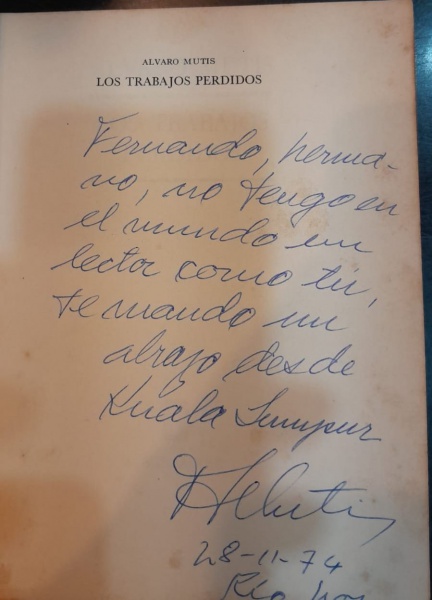 ALVARO MUTIS
LOS TRABAJOS PERDIDOS
Fernando, herma-
no, no tengo en
el mundo un
lector como tú,
te mando un
abrazo desde
Kuala Lumpur
28-11-74